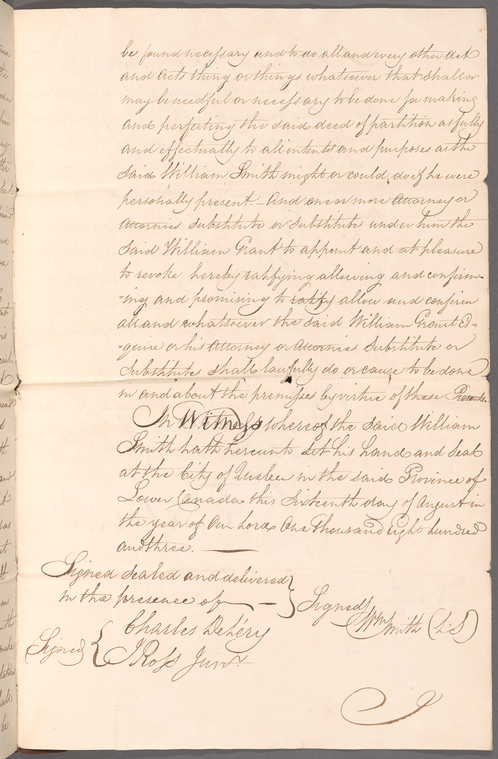 be found necessary and to do all and every other Act
and Acts thing or things whatsoever that shall or
may be needful or necessary to be done for making
and perfecting the said deed of partition as fully
and effectually to all intents and purposes as the
said William Smith might or could do if he were
personally present – And one or more Attorney or
Attornies Substitute or Substitutes under him the
said William Grant to appoint and at pleasure
to revoke hereby ratifying allowing and confirm-
-ing and promising to ratify allow and confirm
all and whatsoever the said William Grant Es-
-quire or his Attorney or Attornies Substitute or
Substitutes shall lawfully do or cause to be done
in and about the premises by virtue of these Presents.
In Witness whereof the said William
Smith hath hereunto set his hand and Seal
at the City of Quebec in the said Province of
Lower Canada this Sixteenth day of August in
the year of Our Lord One Thousand Eight hundred
and three. —
Signed Sealed and delivered
in the presence of —
Signed Wm Smith (L.S)
(Signed) Charles Deléry
J Ross Junr